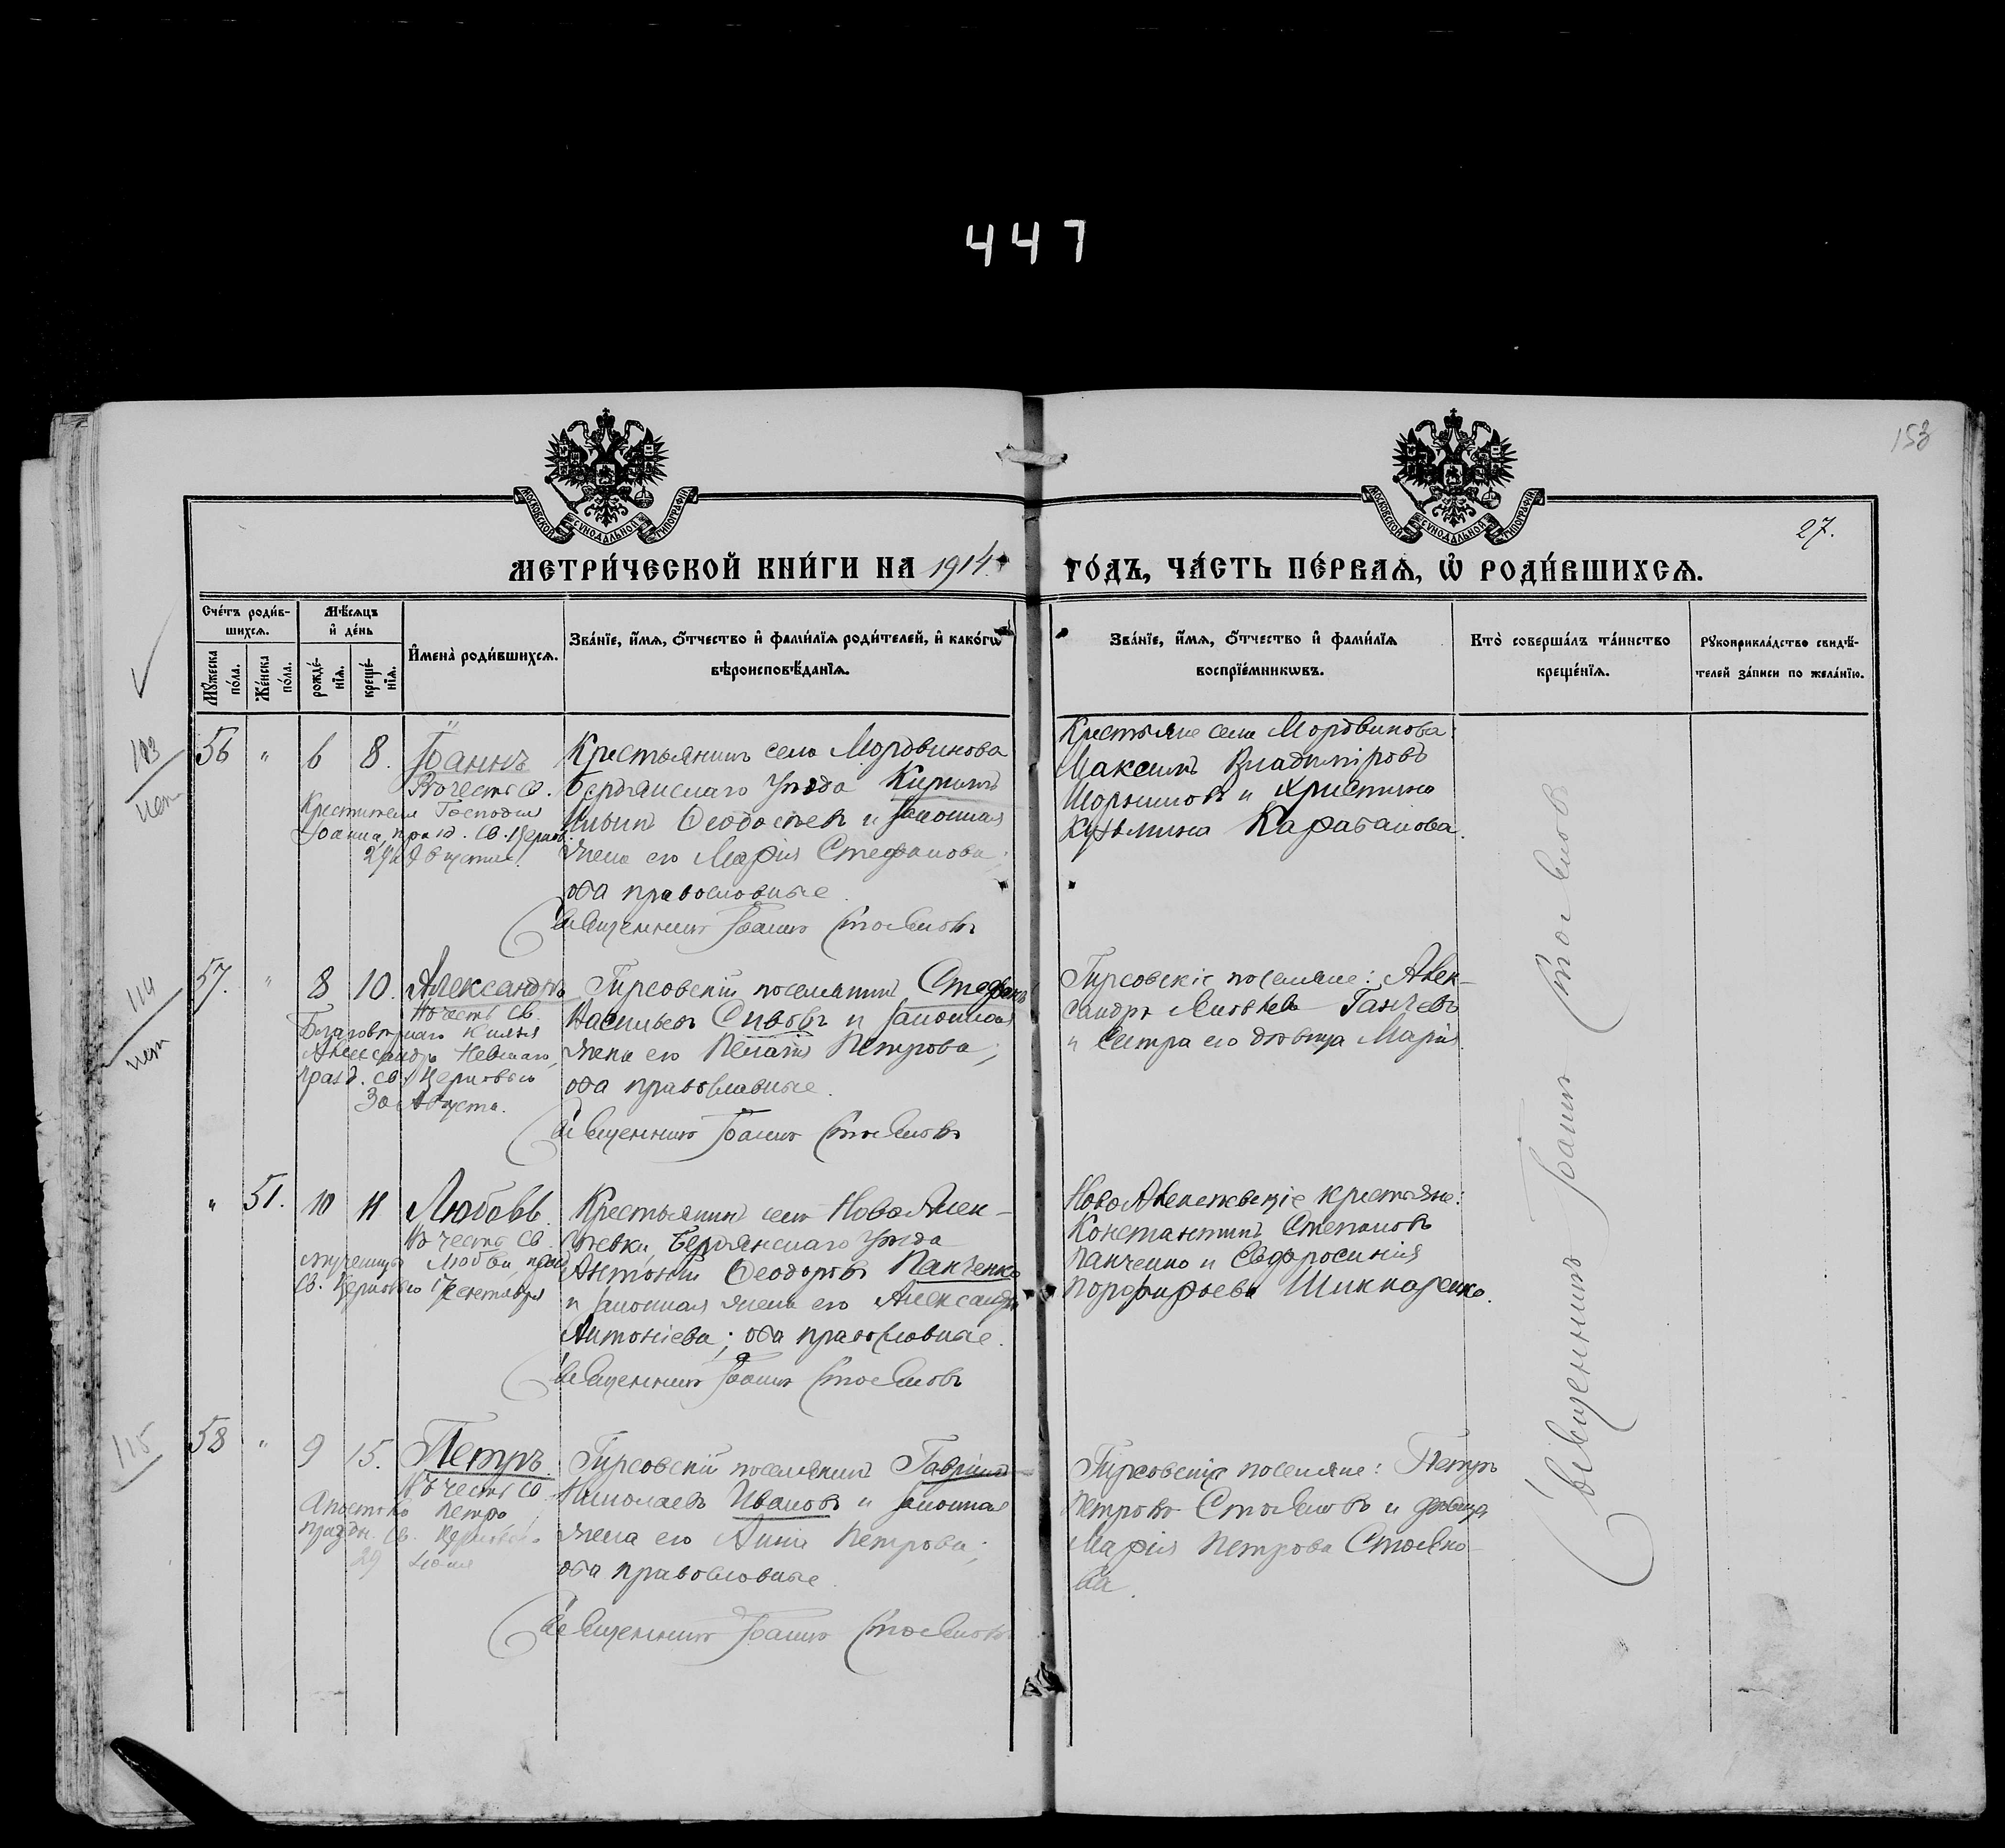 447
153
МОСКОВСКОЙ СѴНОДАЛЬНОЙ ТИПОГРАФІИ
МОСКОВСКОЙ СѴНОДАЛЬНОЙ ТИПОГРАФІИ
27.
МЕТРИ́ЧЕСКОЙ КНИ́ГИ НА 1914 ГО́ДЪ, ЧА́СТЬ ПЕ́РВАѦ, Ѽ РОДИ́ВШИХСѦ.
Сче́тъ роди́в-
шихсѧ.
Мꙋ́жеска по́ла.
Же́нска по́ла.
Мѣ́сѧцъ
и҆ де́нь
рожде́-
нїѧ.
креще́-
нїѧ.
И҆мена̀ роди́вшихсѧ.
Зва́нїе, и҆́мѧ, ѻ҆́тчество и҆ фами́лїѧ роди́телей, и҆ како́гѡ
вѣроисповѣ́данїѧ.
Зва́нїе, и҆́мѧ, ѻ҆́тчество и҆ фами́лїѧ
воспрїе́мникѡвъ.
Кто̀ соверша́лъ та́инство
креще́нїѧ.
Рꙋкоприкла́дство свидѣ́-
телей за́писи по жела́нїю.
113
нет
56 " 6 8. Іоаннъ
В честь св.
Крестителя Господня
Іоанна, празд. св. Церков.
29 Августа.
Крестьянинъ села Мордвинова
Бердянскаго уѣзда Кириллъ
Ильинъ Ѳеодосіевъ и законная
жена его Марія Стефанова;
оба православные.
Священникъ Іоаннъ Стояновъ
Крестьяне села Мордвинова:
Максимъ Владиміровъ
и Христина
Кузьмина Карабанова.
114
нет
57. " 8 10. Александръ
В честь св.
Благовѣрнаго Князя
Александра Невскаго,
празд. св. Церковью
30 Августа.
Гирсовскій поселянинъ Стефанъ
Васильевъ Сивовъ и законная
жена его Пелагія Петрова;
оба православные.
Священникъ Іоаннъ Стояновъ
Гирсовскіе поселяне: Алек-
сандръ Яковлевъ Ганчевъ
и сестра его дѣвица Марія.
" 51. 10 11 Любовь.
В честь св.
мученицы Любви, празд.
св. Церковью 17 Сентября
Крестьянинъ села НовоАлек-
сѣевки, Бердянскаго уѣзда
Антоній Ѳеодоровъ Панченко
и законная жена его Александра
Антоніева; оба православные.
Священникъ Іоаннъ Стояновъ
НовоАлексѣевскіе крестьяне:
Константинъ Степановъ
Панченко и Евфросинія
Порфирьева Шинкаренко.
115
58 " 9 15. Петръ.
В честь св.
Апостола Петра,
праздн. св. Церковью
29 Іюня
Гирсовскій поселянинъ Гавріилъ
Николаевъ Ивановъ и законная
жена его Анна Петрова;
оба православные.
Священникъ Іоаннъ Стояновъ
Гирсовскіе поселяне: Петръ
Петровъ Стояновъ и дѣвица
Марія Петрова Стояно-
ва.
Священникъ Іоаннъ Стояновъ